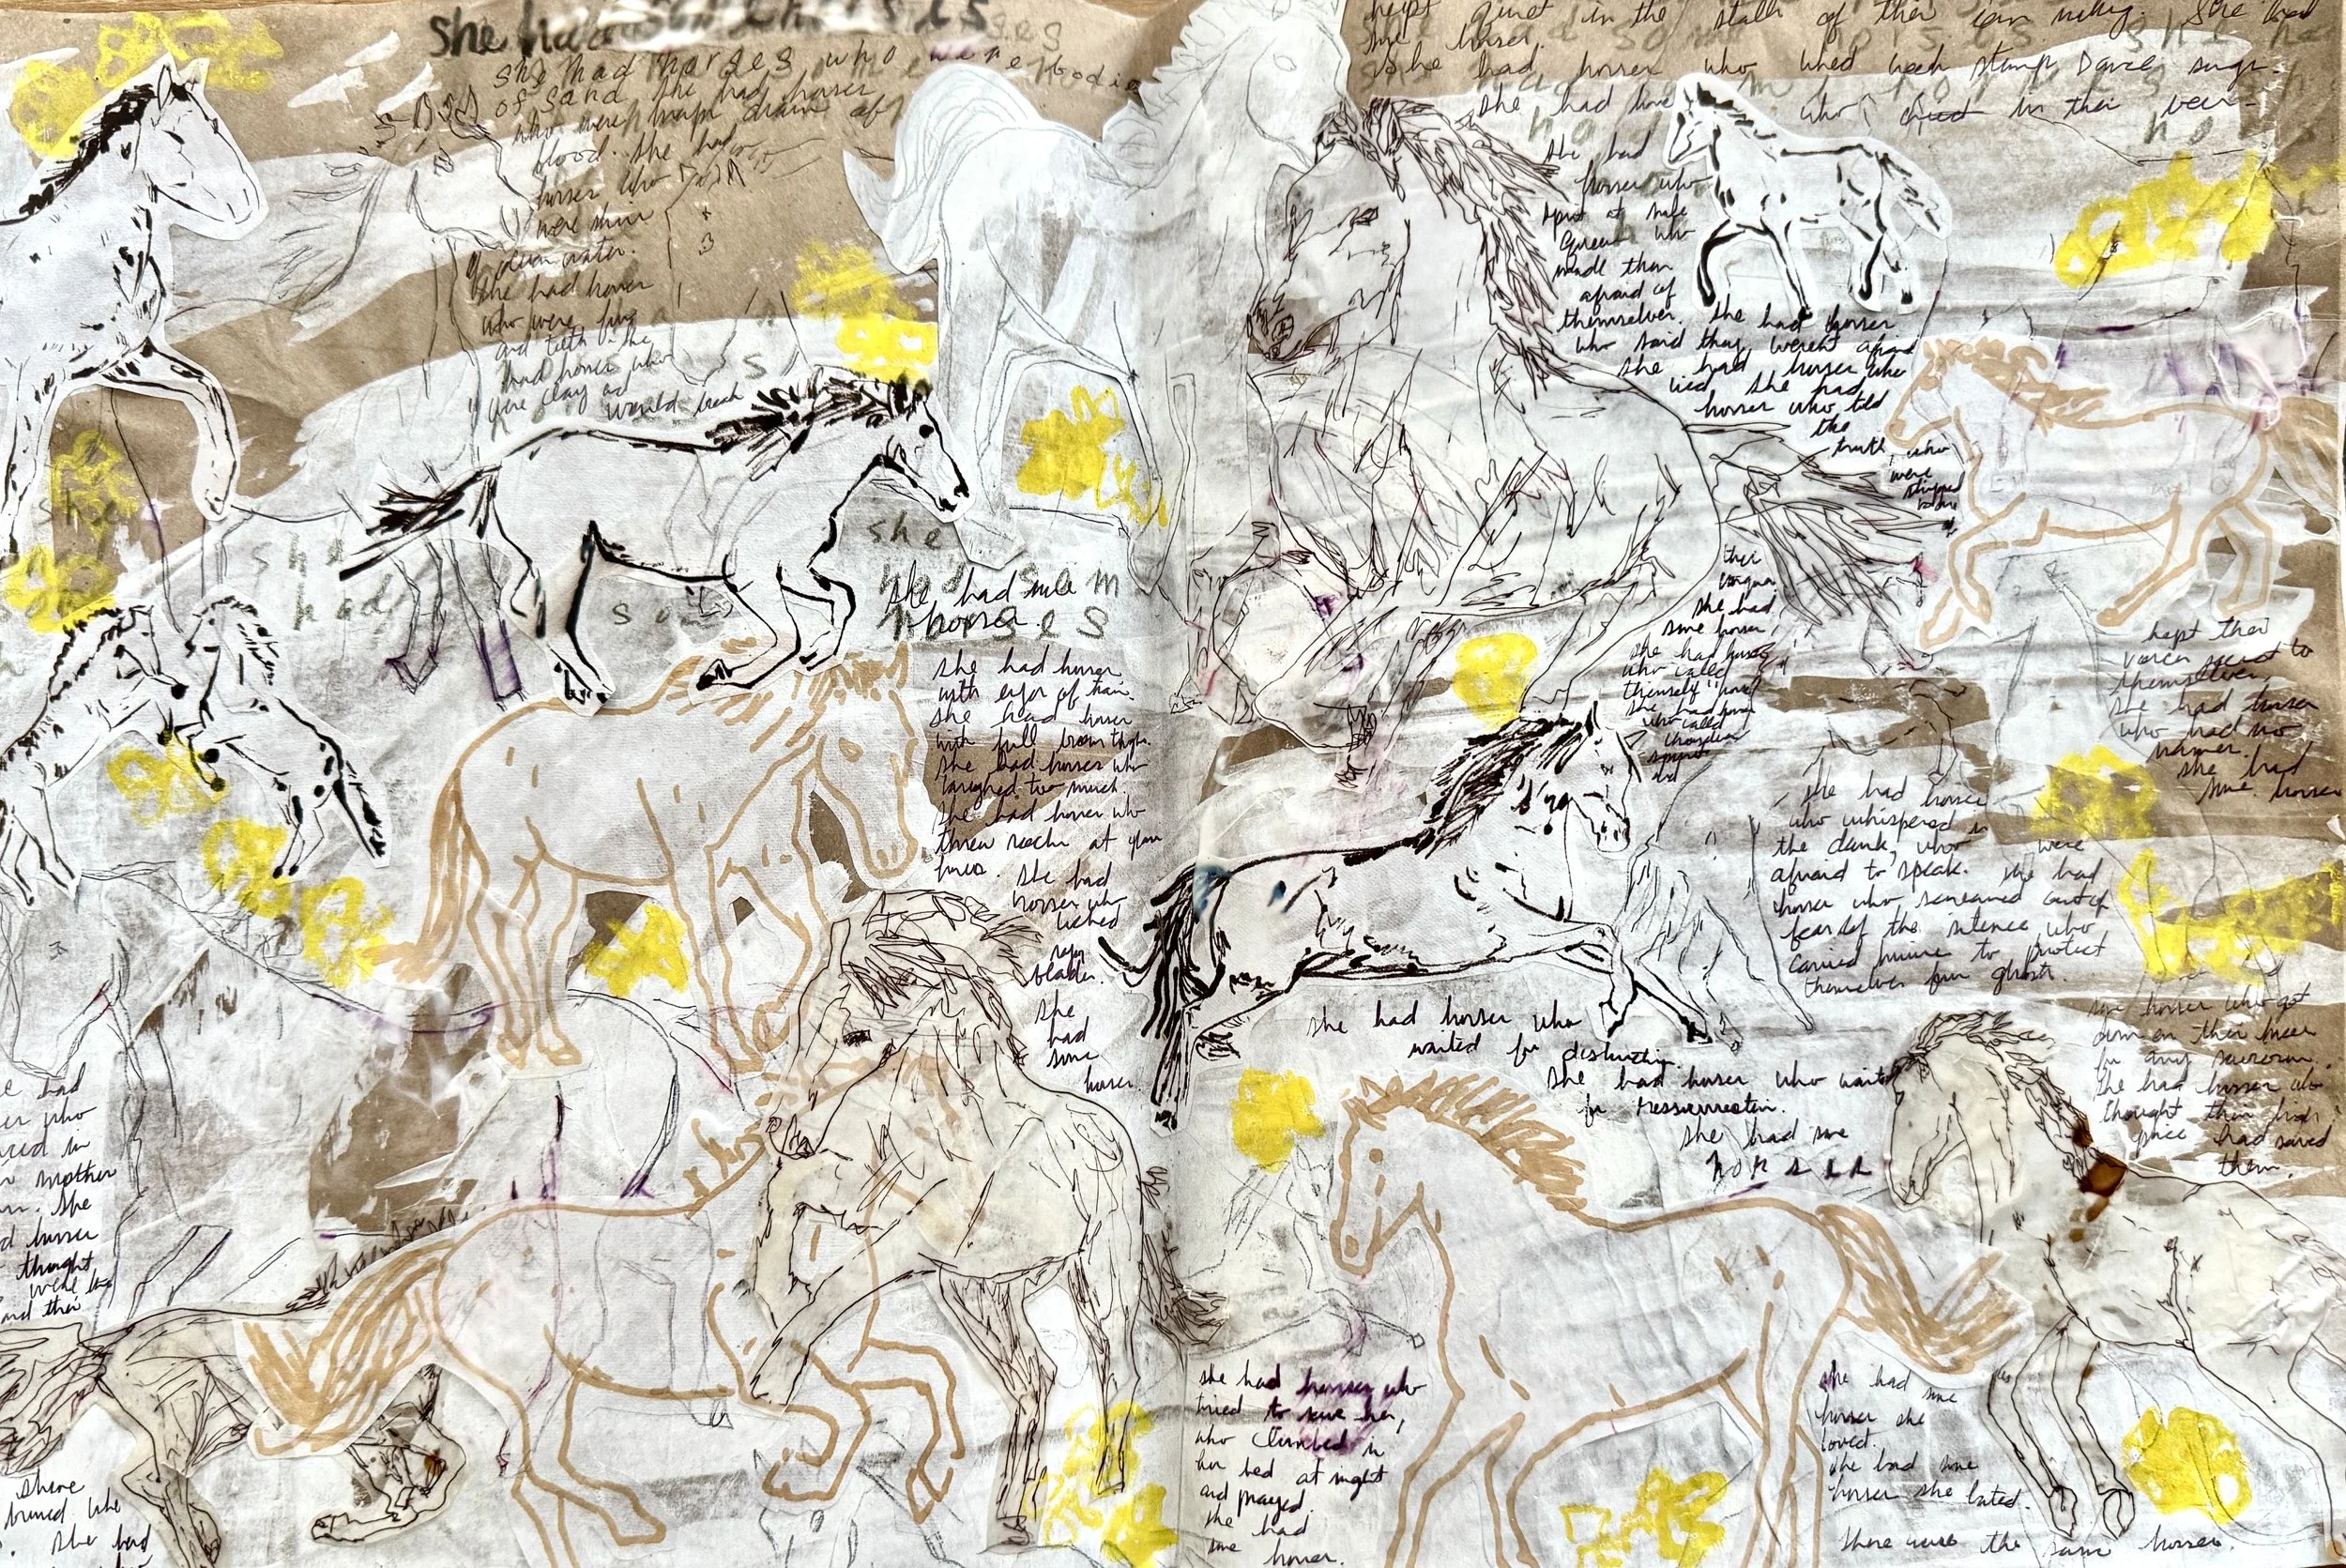 she had some horses
she had horses who were bodies
of sand she had horses
who were maps drawn of
blood. she had
horses who
were skin
of ocean water.
she had horses
who were fur
and teeth. she
had horses who
were clay and would break
she
had
som
she
had som
horses
she had some
horses.
she had horses
with eyes of trains.
she had horses
with full brown thighs.
she had horses who
laughed too much.
she had horses who
threw rocks at glass
houses. she had
horses who
licked
razor
blades.
she
had
some
horses.
e had
er who
in
mother
she
d horses
thought
were the
and their
shone
burned
she had
kept quiet in the stalls of their own making. she had
some horses.
she had horses who liked creek stamp Dance songs.
she had horses who cried in their beer
she had
horses who
spit at male
queens who
made them
afraid of
themselves. she had horses
who said they weren't afraid
she had horses who
lied she had
horses who told
the
truth, who
were
stripped
bare
their
tongues
she had
some horses
she had horses
who called
themselves "horse"
she had horses
who called
themselves
spirit
and
kept their
voices secret to
themselves.
she had horses
who had no
names.
she had
some horses
she had horses
who whispered in
the dark, who were
afraid to speak. she had
horses who screamed out of
fear of the silence who
carried knives to protect
themselves from ghosts.
she had horses who
waited for destruction.
she had horses who waited
for ressurrection.
she had some
horses
some horses who got
down on their knees
for any saviour.
she had horses who
thought their high
price had saved
them.
she had horses who
tried to save her,
who climbed in
her bed at night
and prayed.
she had
some horses.
she had some
horses she
loved.
she had some
horses she hated.
these were the same horses.